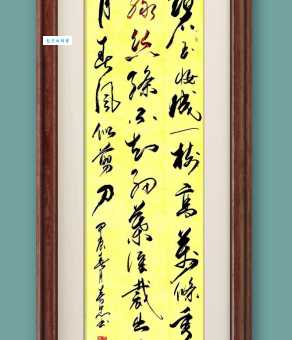 碧玉妆成一树高万条垂
绿丝绦不知细叶谁裁出
月春风似剪刀
甲辰春月